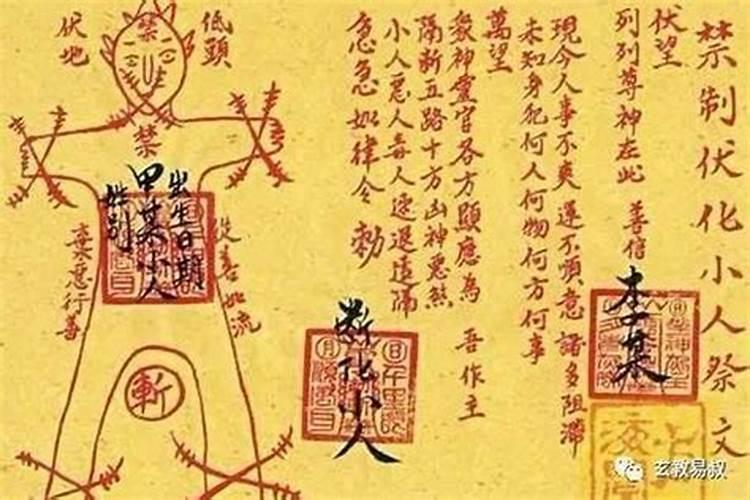 禁制伏化小人祭文
伏望
列列尊神在此 善信 李某
現今人事不爽 運不順意 諸多阻滯
未知身犯何人何物何方何事
萬望
眾神靈官各方顯應為 吾作主
隔断五路十方凶神惡煞
小人惡人毒人速退遠隔
急急如律令 勅
断化小人
低頭
禁
伏地
禁
出生日期
甲某小人
姓别
從善如流
棄惡行善
斬
玄教易叔